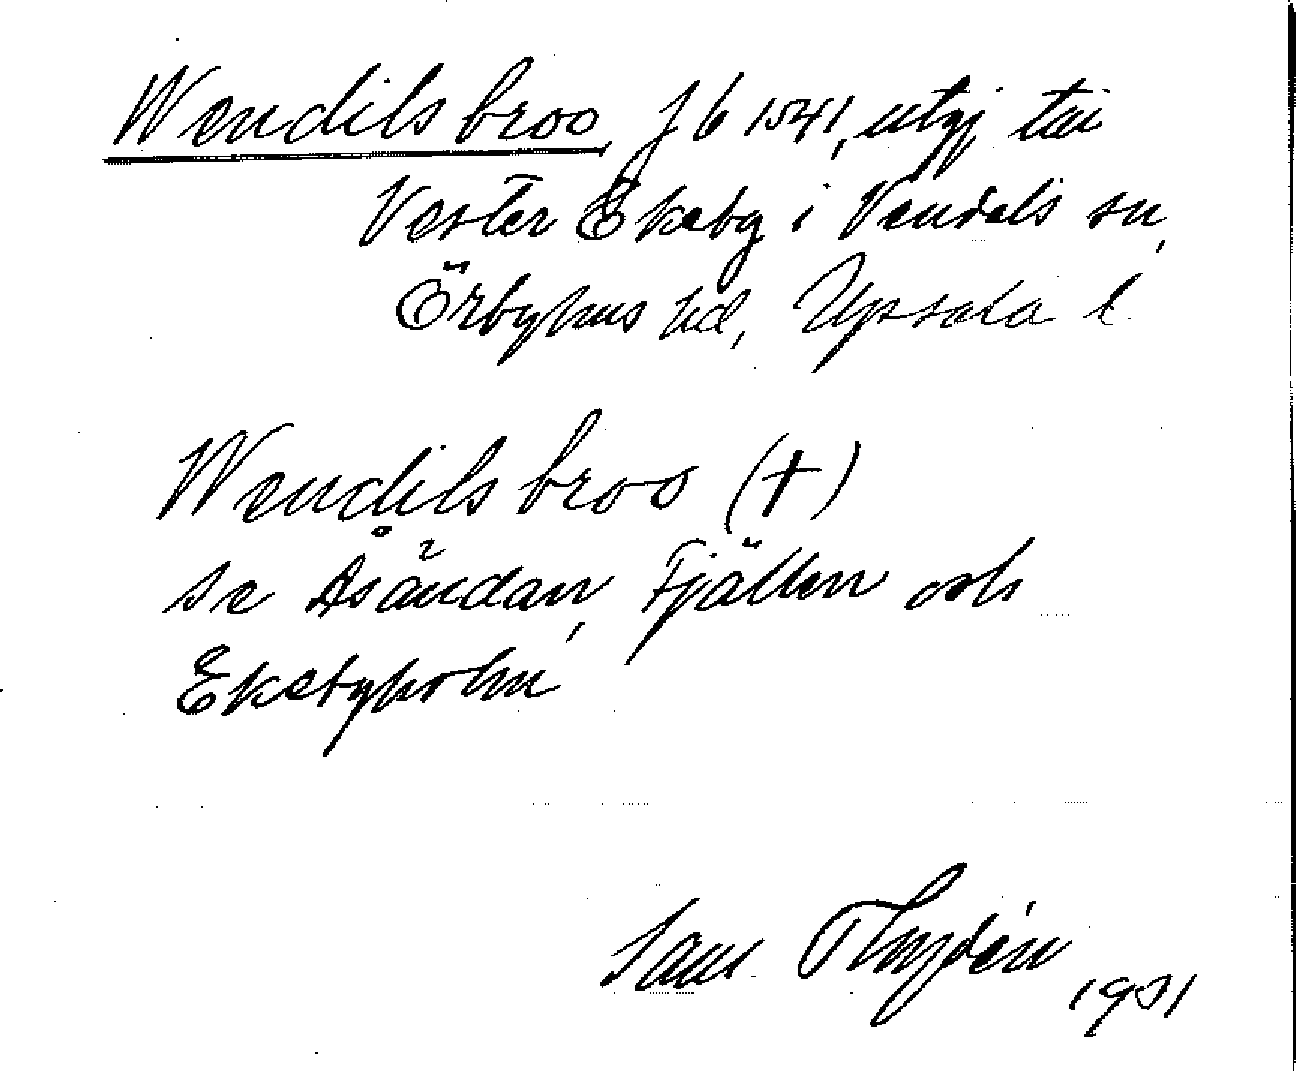 Wendils broo, J b 1541, utgj till
Vester Ekeby i Vendels sn,
Örbyhus hd, Upsala l
Wendils broo (†)
se Åsändan, Fjällen och
Ekebyholm
Sam
1931